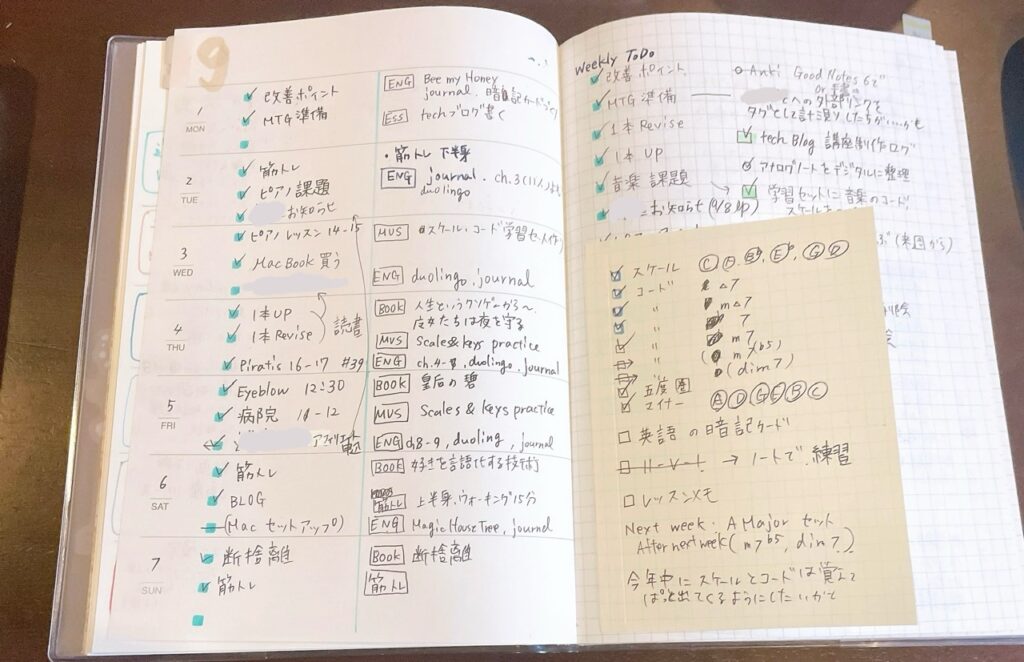 9
1
MON
改善ポイント
MTG 準備
ENG Bee my Honey
journal.
ESS techブログ書く
2
TUE
筋トレ
ピアノ課題
お知らせ
・筋トレ 下半身
ENG journal. ch.3
duolingo
3
WED
ピアノレッスン 14-15
MacBook 買う
MUS スケール・コード 学習セット作り
ENG duolingo. journal
4
THU
1本 UP
1本 Revise
読書
Piratis 16-17 #39
BOOK 人生というクソゲーから〜
彼女たちは夜を守る
MUS Scales & keys practice
ENG ch.4- , duolingo, journal
5
FRI
Eyeblow 12:30
病院 -12
アフィリエイト
BOOK 皇后の碧
MUS Scales & keys practice
ENG ch8-9, duoling, journal
6
SAT
筋トレ
BLOG
(Mac セットアップ)
BOOK 好きを言語化する技術
筋トレ 上半身, ウォーキング15分
ENG Magic House Tree, journal
7
SUN
断捨離
筋トレ
BOOK 断捨離
筋トレ
Weekly ToDo
改善ポイント
MTG 準備
1本 Revise
1本 UP
音楽 課題
お知らせ (9/8 up)
Anki Good Notes 6で
or 手書き
への外部リンクを
タグとして
tech Blog 講座制作ログ
アナログノートをデジタルに整理
学習セットに音楽のコード,
(来週から)
スケール C
コード △7
〃 m△7
〃 7
〃 m7
〃 (m7(b5)
(dim7)
五度圏
マイナー A D G F B C
英語の暗記カード
II-V-I → ノートで練習
レッスンメモ
Next week: A Major セット
After next week (m7 b5, dim7)
今年中にスケールとコードは覚えて
ぱっと出てくるようにしたい